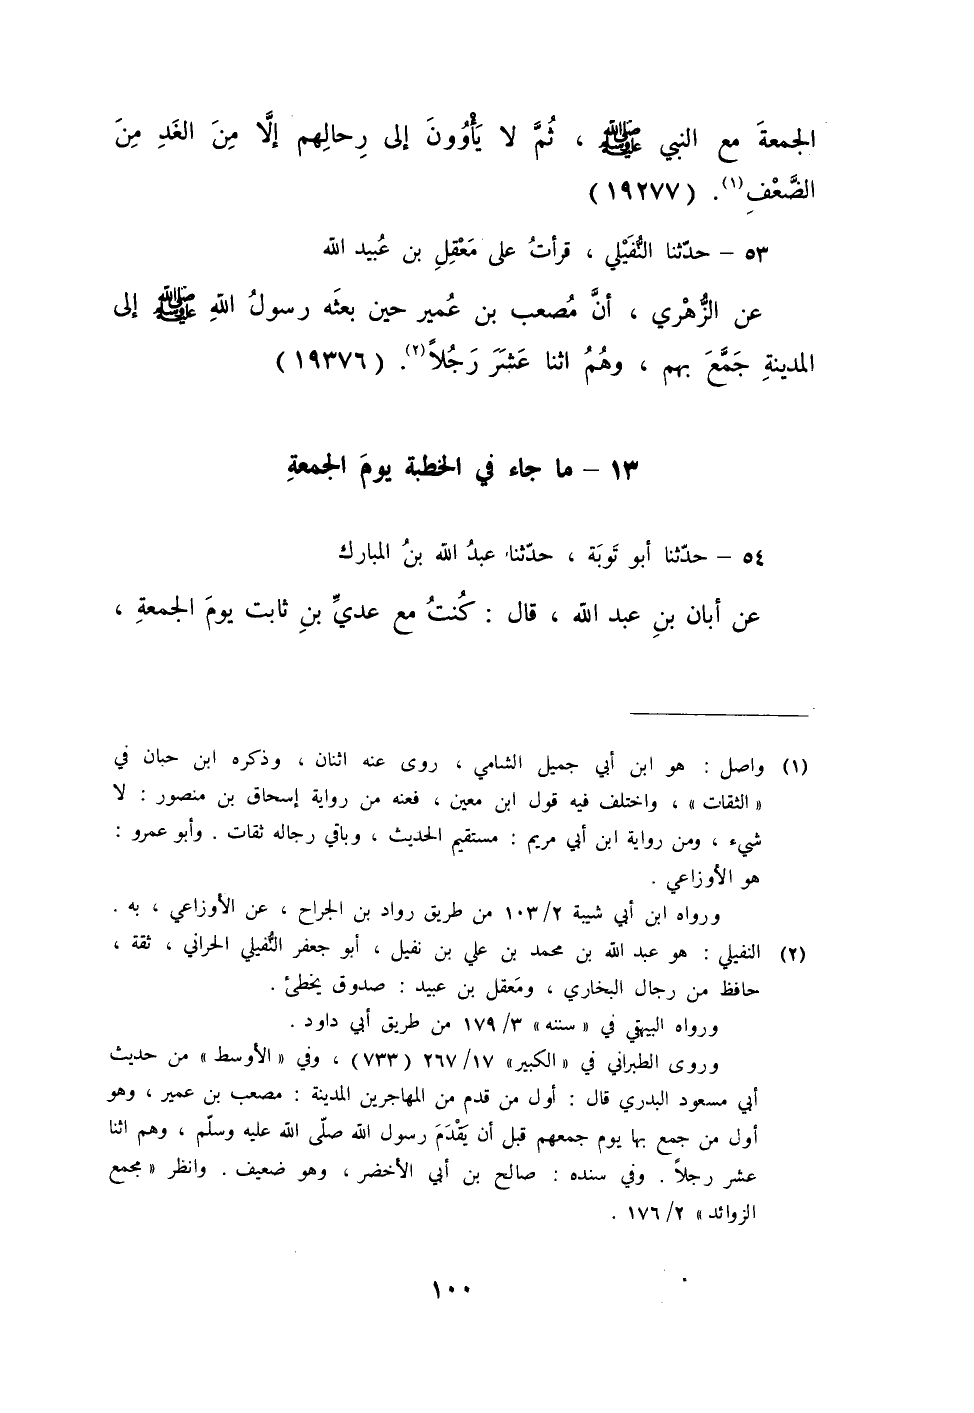 الجمعةَ مع النبي ﷺ ، ثُمَّ لا يَأْوُونَ إلى رِحالِهم إلَّا مِنَ الغَدِ مِنَ
الضَّعْفِ(١). (١٩٢٧٧)
٥٣ – حدّثنا النُّفَيْلي ، قرأتُ على مَعْقِلِ بن عُبيد الله
عن الزُّهْري ، أنَّ مُصعب بن عُمير حين بعثَه رسولُ اللهِ ﷺ إلى
المدينةِ جَمَّعَ بهم ، وهُمُ اثنا عَشَرَ رَجُلاً(٢). (١٩٣٧٦)
١٣ – ما جاء في الخطبة يومَ الجمعةِ
٥٤ – حدّثنا أبو تَوبَة ، حدّثنا عبدُ الله بنُ المبارك
عن أبان بنِ عبد الله ، قال : كُنتُ مع عديِّ بنِ ثابت يومَ الجمعةِ ،
(١) واصل : هو ابن أبي جميل الشامي ، روى عنه اثنان ، وذكره ابن حبان في
« الثقات » ، واختلف فيه قول ابن معين ، فعنه من رواية إسحاق بن منصور : لا
شيء ، ومن رواية ابن أبي مريم : مستقيم الحديث ، وباقي رجاله ثقات . وأبو عمرو :
هو الأوزاعي .
ورواه ابن أبي شيبة ٢/ ١٠٣ من طريق رواد بن الجراح ، عن الأوزاعي ، به .
(٢) النفيلي : هو عبد الله بن محمد بن علي بن نفيل ، أبو جعفر النُّفيلي الحراني ، ثقة ،
حافظ من رجال البخاري ، ومَعقل بن عبيد : صدوق يخطئ .
ورواه البيهقي في « سننه » ٣/ ١٧٩ من طريق أبي داود .
وروى الطبراني في « الكبير » ١٧/ ٢٦٧ (٧٣٣) ، وفي « الأوسط » من حديث
أبي مسعود البدري قال : أول من قدم من المهاجرين المدينة : مصعب بن عمير ، وهو
أول من جمع بها يوم جمعهم قبل أن يَقْدَمَ رسول الله صلّى الله عليه وسلّم ، وهم اثنا
عشر رجلاً . وفي سنده : صالح بن أبي الأخضر ، وهو ضعيف . وانظر « مجمع
الزوائد » ٢/ ١٧٦ .
١٠٠